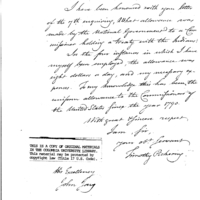 I have been honored with your letter
of the 9th enquiring, What allowance was
made by the National Government to a Com-
missioner holding a Treaty with the Indians?
In the five instances in which I have
myself been employed, the allowance was
eight dollars a day, and my necessary ex-
penses. To my knowledge this has been the
uniform allowance to the Commissioners of
the United States since the year 1790.
With great & sincere respect,
I am, Sir,
your obt. Servant
Timothy Pickering
THIS IS A COPY OF ORIGINAL MATERIALS
IN THE COLUMBIA UNIVERSITY LIBRARY.
This material may be protected by
copyright law (Title 17 U.S. Code).
His Excellency
John Jay